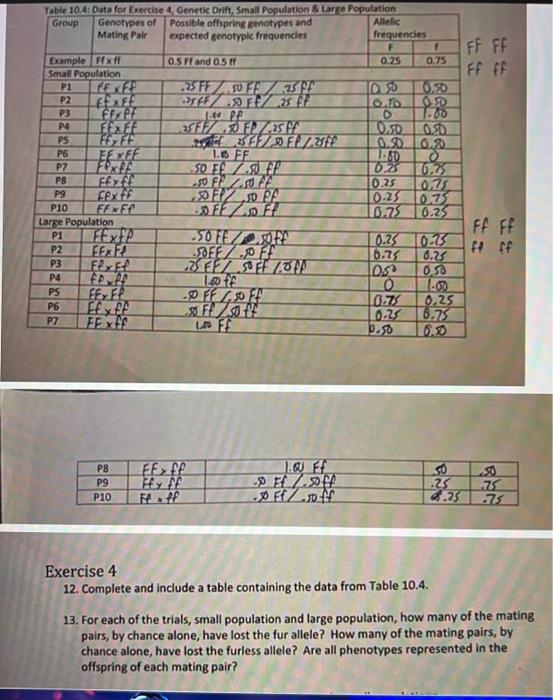 Table 10.4: Data for Exercise 4, Genetic Drift, Small Population & Large Population
Group Genotypes of Mating Pair Possible offspring genotypes and expected genotypic frequencies Allelic frequencies
F f
Example Ff x ff 0.5 Ff and 0.5 ff 0.25 0.75
Small Population
P1 .25 FF / .50 Ff / .25 ff 0.50 0.50
P2 Ff x Ff .25 FF / .50 Ff / .25 ff 0.50 0.50
P3 ff x ff 1.00 ff 0 1.00
P4 Ff x Ff .25 FF / .50 Ff / .25 ff 0.50 0.50
P5 Ff x Ff .25 FF / .50 Ff / .25 ff 0.50 0.50
P6 FF x FF 1.00 FF 1.00 0
P7 Ff x ff .50 Ff / .50 ff 0.25 0.75
P8 Ff x ff .50 Ff / .50 ff 0.25 0.75
P9 Ff x ff .50 Ff / .50 ff 0.25 0.75
P10 FF x Ff .50 FF / .50 Ff 0.75 0.25
Large Population
P1 .50 Ff / .50 ff 0.25 0.75
P2 FF x Ff .50 FF / .50 Ff 0.75 0.25
P3 Ff x Ff .25 FF / .50 Ff / .25 ff 0.50 0.50
P4 ff x ff 1.00 ff 0 1.00
P5 FF x Ff .50 FF / .50 Ff 0.75 0.25
P6 Ff x ff .50 Ff / .50 ff 0.25 0.75
P7 FF x ff 1.00 Ff 0.50 0.50
P8 FF x ff 1.00 Ff .50 .50
P9 Ff x ff .50 Ff / .50 ff .25 .75
P10 Ff x ff .50 Ff / .50 ff .25 .75
Exercise 4
12. Complete and include a table containing the data from Table 10.4.
13. For each of the trials, small population and large population, how many of the mating
pairs, by chance alone, have lost the fur allele? How many of the mating pairs, by
chance alone, have lost the furless allele? Are all phenotypes represented in the
offspring of each mating pair?